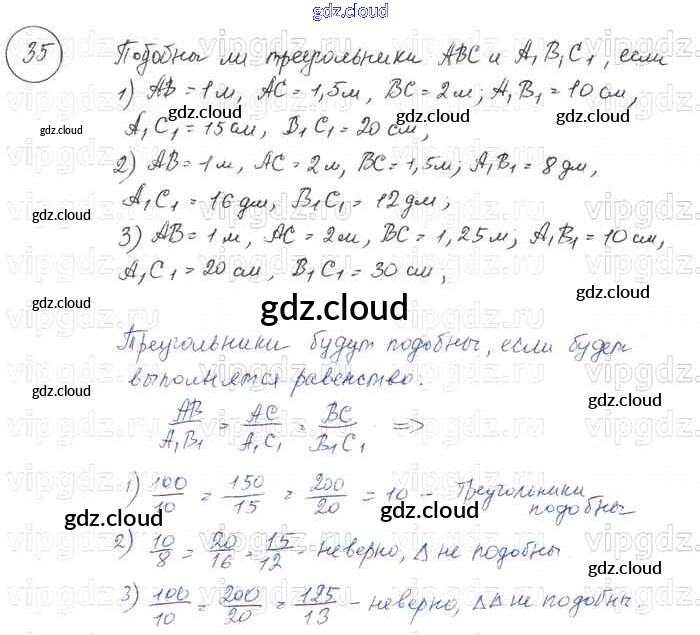 gdz.cloud
35 Подобны ли треугольники ABC и A₁B₁C₁, если
1) AB = 1 м, AC = 1,5 м, BC = 2 м; A₁B₁ = 10 см,
gdz.cloud gdz.cloud gdz.cloud
A₁C₁ = 15 см, B₁C₁ = 20 см,
2) AB = 1 м, AC = 2 м, BC = 1,5 м; A₁B₁ = 8 дм,
A₁C₁ = 16 дм, B₁C₁ = 12 дм;
gdz.cloud gdz.cloud
3) AB = 1 м, AC = 2 м, BC = 1,25 м; A₁B₁ = 10 см,
A₁C₁ = 20 см, B₁C₁ = 30 см,
gdz.cloud gdz.cloud gdz.cloud
Треугольники будут подобны, если будет
выполнятся равенство:
gdz.cloud gdz.cloud
AB/A₁B₁ = AC/A₁C₁ = BC/B₁C₁ =>
1) 100/10 = 150/15 = 200/20 = 10 - Треугольники
подобны
gdz.cloud gdz.cloud
2) 10/8 = 20/16 = 15/12 - неверно, Δ не подобны
gdz.cloud
3) 100/10 = 200/20 = 125/13 - неверно, ΔΔ не подобны.
gdz.cloud gdz.cloud